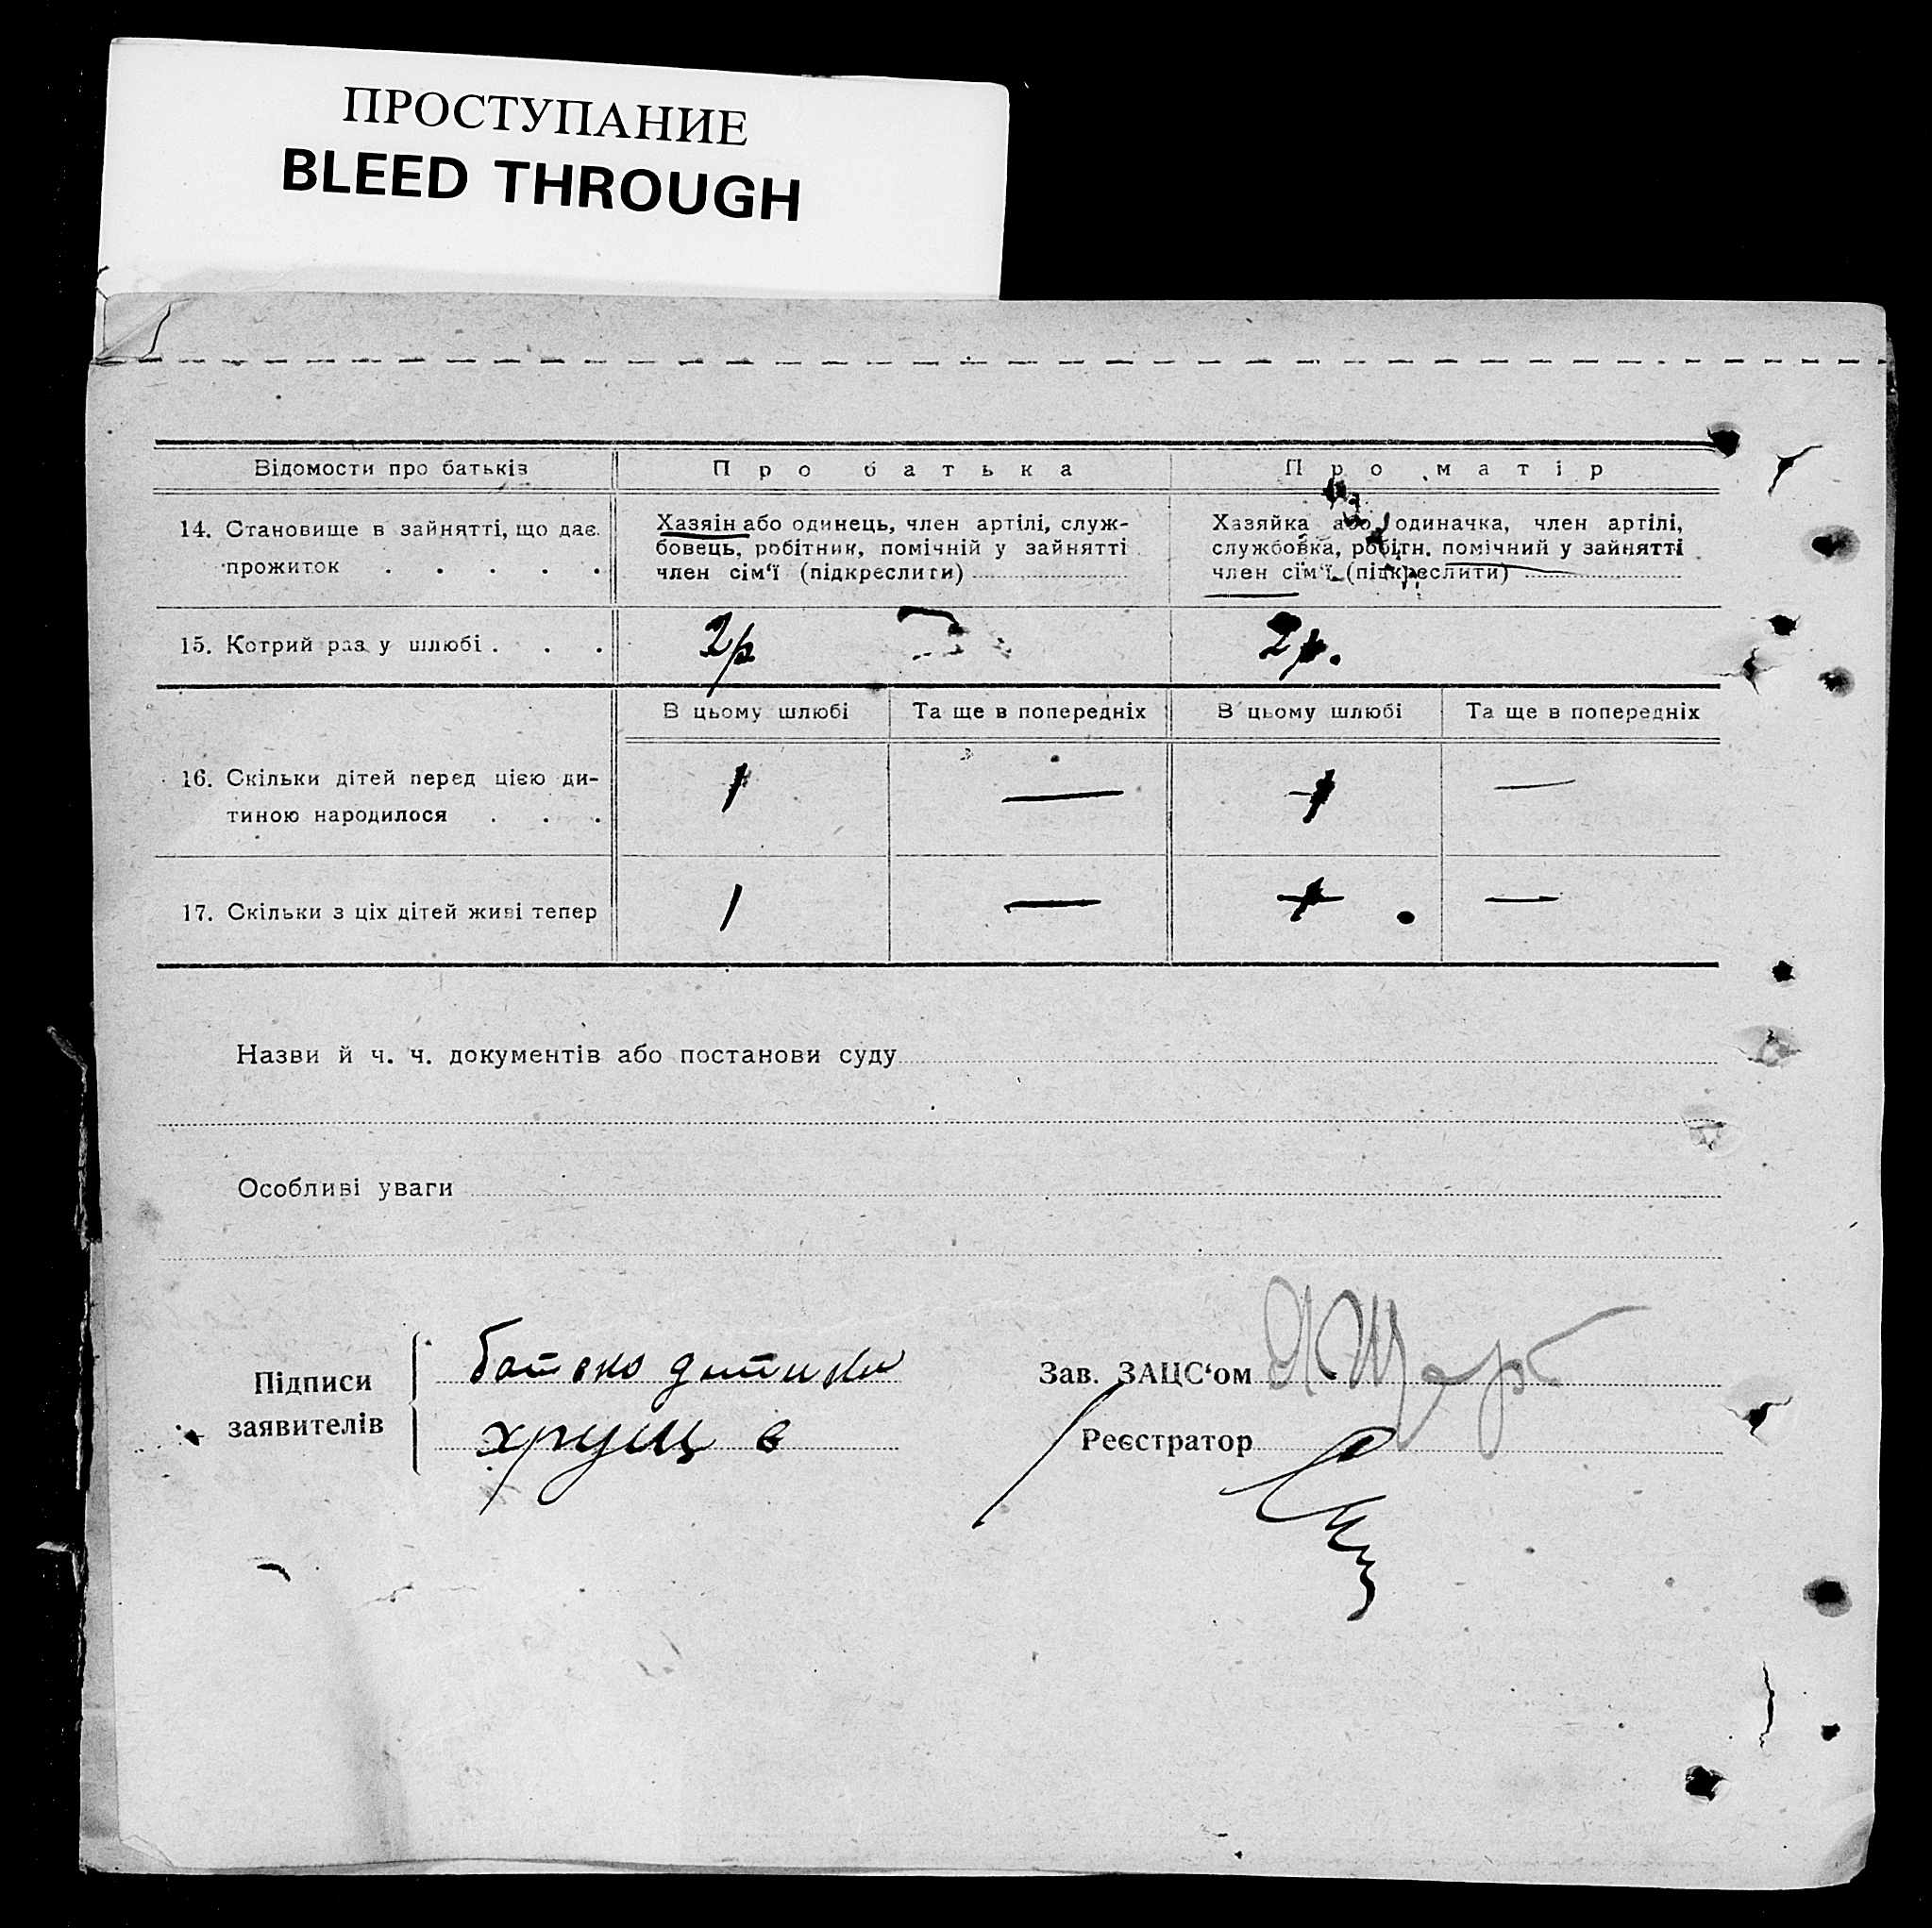 ПРОСТУПАНИЕ
BLEED THROUGH
Відомости про батьків
Про батька
Про матір
14. Становище в зайнятті, що дає прожиток . . . . .
Хазяін або одинець, член артілі, служ-
бовець, робітник, помічній у зайнятті
член сім‘ї (підкреслити)
Хазяйка або одиначка, член артілі,
службовка, робітн. помічний у зайнятті
член сім‘ї (підкреслити)
15. Котрий раз у шлюбі . . .
2р
2р.
В цьому шлюбі
Та ще в попередніх
В цьому шлюбі
Та ще в попередніх
16. Скільки дітей перед цією ди-
тиною народилося . . .
1 — 1 —
17. Скільки з ціх дітей живі тепер
1 — 1 —
Назви й ч. ч. документів або постанови суду
Особливі уваги
Підписи
заявителів
батько дитини
хрущ в
Зав. ЗАЦС‘ом
Реєстратор